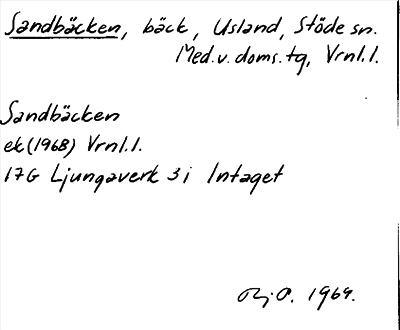 Sandbäcken, bäck, Usland, Stöde sn.
Med.v.doms.tg, Vrnl.l.
Sandbäcken
ek(1968) Vrnl.l.
17G Ljungaverk 3i Intaget
1969.